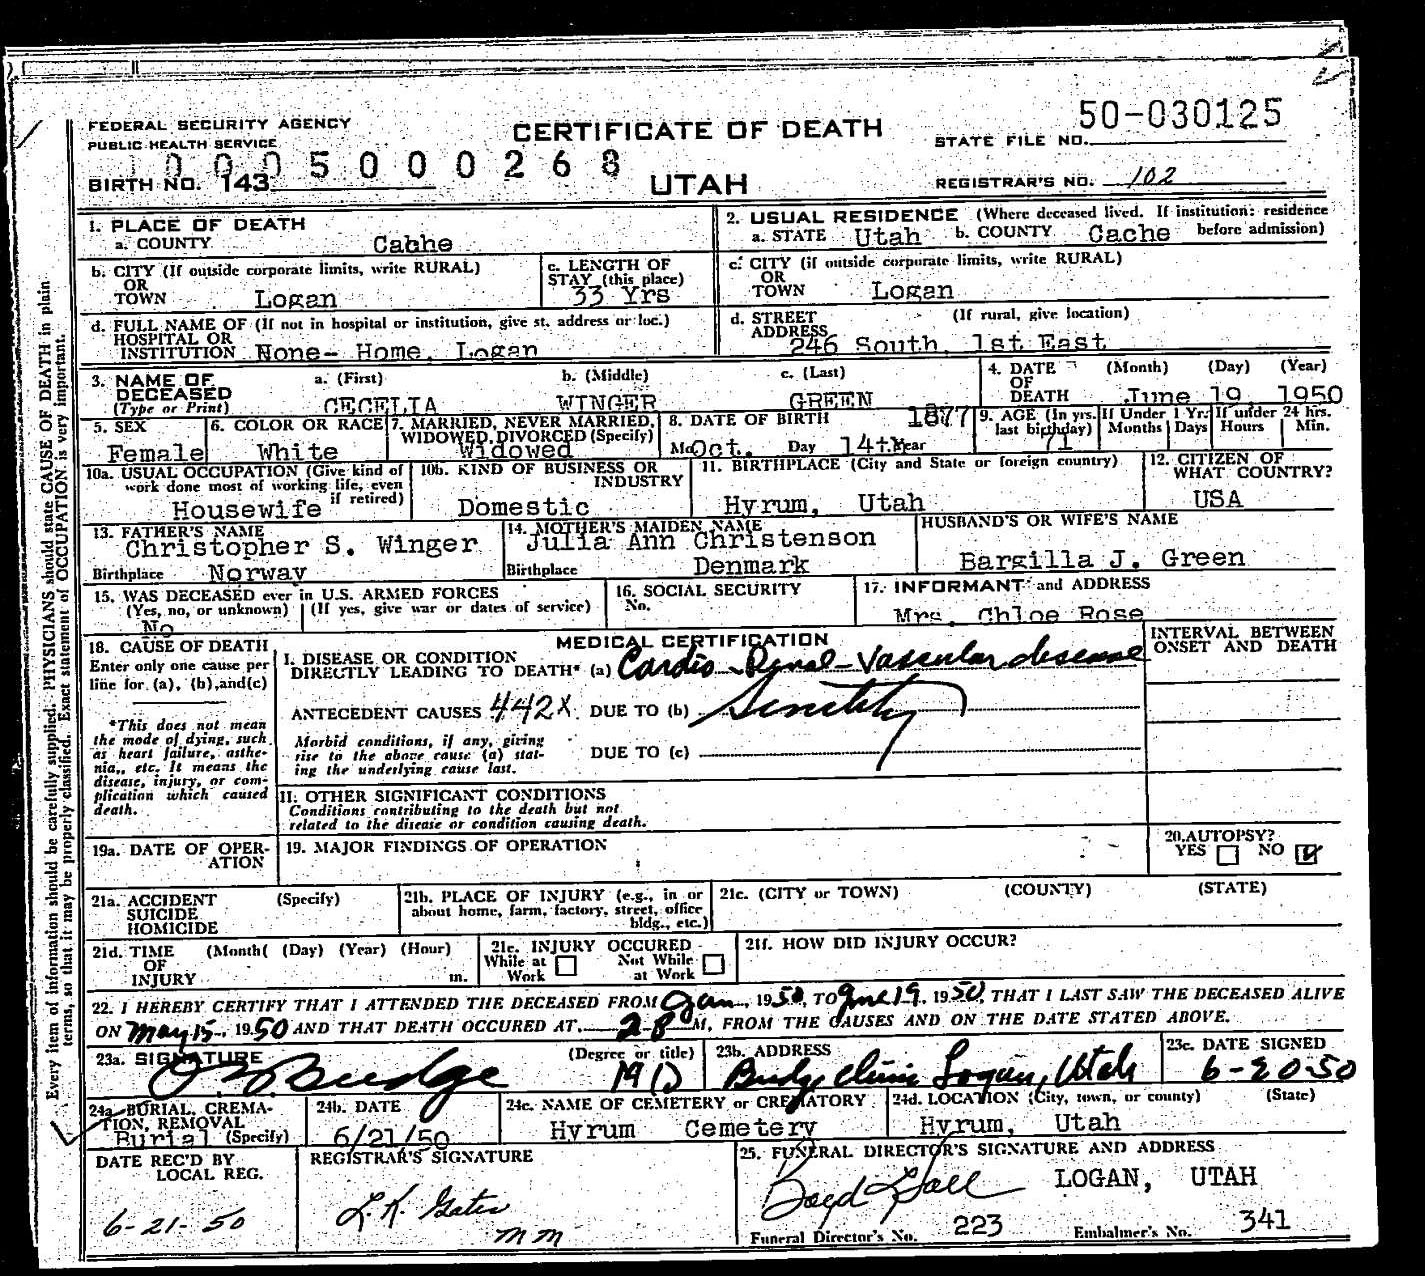 50-030125
FEDERAL SECURITY AGENCY
PUBLIC HEALTH SERVICE
CERTIFICATE OF DEATH
STATE FILE NO.
0005000268
BIRTH NO. 143
UTAH
REGISTRAR'S NO. 102
1. PLACE OF DEATH
a. COUNTY Cabhe
2. USUAL RESIDENCE (Where deceased lived. If institution: residence before admission)
a. STATE Utah b. COUNTY Cache
b. CITY (If outside corporate limits, write RURAL)
OR
TOWN Logan
c. LENGTH OF
STAY (this place)
33 Yrs
c. CITY (if outside corporate limits, write RURAL)
OR
TOWN Logan
d. FULL NAME OF (If not in hospital or institution, give st. address or loc.)
HOSPITAL OR
INSTITUTION None- Home, Logan
d. STREET (If rural, give location)
ADDRESS
246 South, 1st East
3. NAME OF DECEASED
(Type or Print)
a. (First) b. (Middle) c. (Last)
CECELIA WINGER GREEN
4. DATE OF DEATH (Month) (Day) (Year)
June 19, 1950
5. SEX
Female
6. COLOR OR RACE
White
7. MARRIED, NEVER MARRIED,
WIDOWED, DIVORCED (Specify)
Widowed
8. DATE OF BIRTH 1877
Mo Oct. Day 14th Year
9. AGE (In yrs. last birthday)
71
If Under 1 Yr.
Months Days
If under 24 hrs.
Hours Min.
10a. USUAL OCCUPATION (Give kind of
work done most of working life, even
if retired)
Housewife
10b. KIND OF BUSINESS OR
INDUSTRY
Domestic
11. BIRTHPLACE (City and State or foreign country)
Hyrum, Utah
12. CITIZEN OF
WHAT COUNTRY?
USA
13. FATHER'S NAME
Christopher S. Winger
Birthplace Norway
14. MOTHER'S MAIDEN NAME
Julia Ann Christenson
Birthplace Denmark
HUSBAND'S OR WIFE'S NAME
Bargilla J. Green
15. WAS DECEASED ever in U.S. ARMED FORCES
(Yes, no, or unknown) (If yes, give war or dates of service)
No
16. SOCIAL SECURITY
No.
17. INFORMANT and ADDRESS
Mrs. Chloe Rose
18. CAUSE OF DEATH
Enter only one cause per
line for (a), (b), and (c)
*This does not mean
the mode of dying, such
as heart failure, asthe-
nia, etc. It means the
disease, injury, or com-
plication which caused
death.
MEDICAL CERTIFICATION
INTERVAL BETWEEN
ONSET AND DEATH
I. DISEASE OR CONDITION
DIRECTLY LEADING TO DEATH* (a) Cardio-Renal-Vascular disease
ANTECEDENT CAUSES 442X DUE TO (b) Senility
Morbid conditions, if any, giving
rise to the above cause (a) stat-
ing the underlying cause last.
DUE TO (c)
II. OTHER SIGNIFICANT CONDITIONS
Conditions contributing to the death but not
related to the disease or condition causing death.
19a. DATE OF OPER-
ATION
19. MAJOR FINDINGS OF OPERATION
20. AUTOPSY?
YES NO
21a. ACCIDENT (Specify)
SUICIDE
HOMICIDE
21b. PLACE OF INJURY (e.g., in or
about home, farm, factory, street, office
bldg., etc.)
21c. (CITY or TOWN) (COUNTY) (STATE)
21d. TIME (Month( (Day) (Year) (Hour)
OF
INJURY m.
21e. INJURY OCCURED
While at Work Not While at Work
21f. HOW DID INJURY OCCUR?
22. I HEREBY CERTIFY THAT I ATTENDED THE DECEASED FROM Jan, 1950, TO June 19, 1950, THAT I LAST SAW THE DECEASED ALIVE
ON May 15, 1950 AND THAT DEATH OCCURED AT 2 P M, FROM THE CAUSES AND ON THE DATE STATED ABOVE.
23a. SIGNATURE (Degree or title)
Budge MD
23b. ADDRESS
Budge Clinic Logan, Utah
23c. DATE SIGNED
6-20-50
24a. BURIAL, CREMA-
TION, REMOVAL
Burial (Specify)
24b. DATE
6/21/50
24c. NAME OF CEMETERY or CREMATORY
Hyrum Cemetery
24d. LOCATION (City, town, or county) (State)
Hyrum, Utah
DATE REC'D BY
LOCAL REG.
6-21-50
REGISTRAR'S SIGNATURE
L.K. Gates
mm
25. FUNERAL DIRECTOR'S SIGNATURE AND ADDRESS
Boyd Hall LOGAN, UTAH
Funeral Director's No. 223 Embalmer's No. 341
Every item of information should be carefully supplied. PHYSICIANS should state CAUSE OF DEATH in plain
terms, so that it may be properly classified. Exact statement of OCCUPATION is very important.